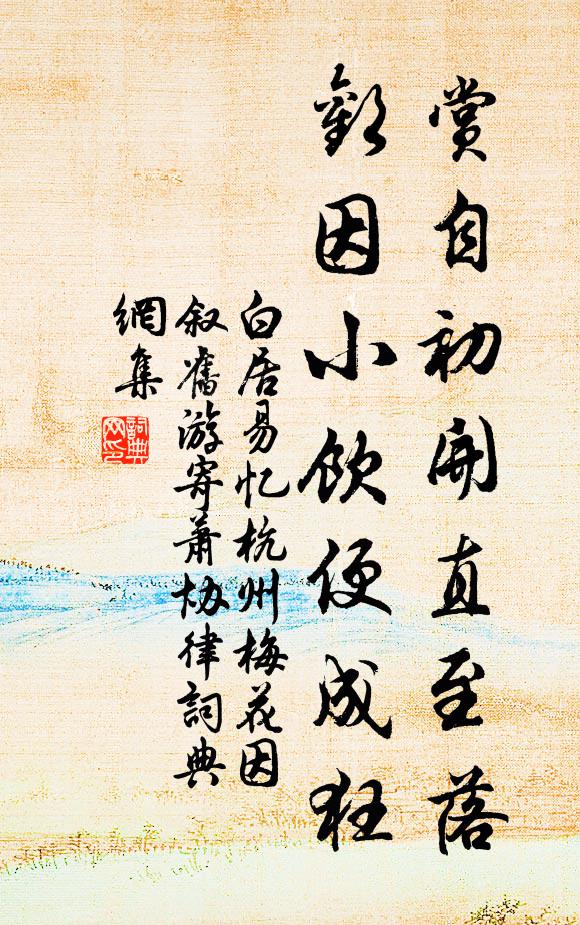 賞自初開直至落
歡因小飲便成狂
白居易忆杭州梅花因
叙舊游寄萧协律詞典
網集
詞典
网印